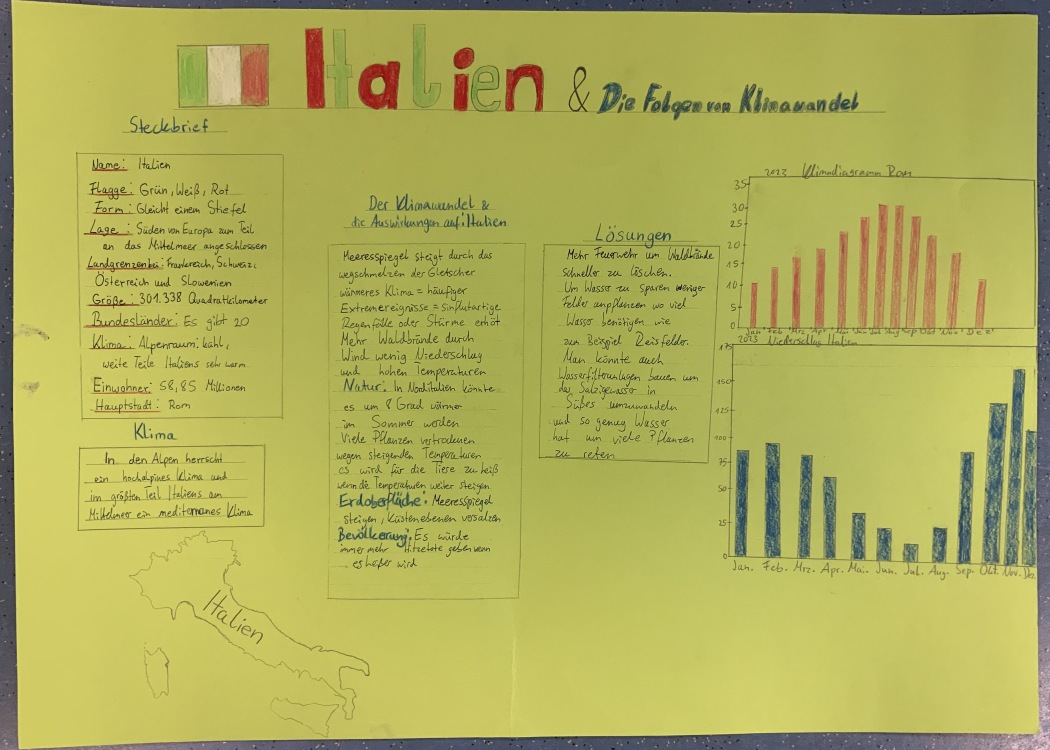 Italien & Die Folgen von Klimawandel
Steckbrief
Name: Italien
Flagge: Grün, Weiß, Rot
Form: Gleicht einem Stiefel
Lage: Süden von Europa zum Teil
an das Mittelmeer angeschlossen
Landgrenzen bei: Frankreich, Schweiz,
Österreich und Slowenien
Größe: 301.338 Quadratkilometer
Bundesländer: Es gibt 20
Klima: Alpenraum: kühl,
weite Teile Italiens sehr warm
Einwohner: 58,85 Millionen
Hauptstadt: Rom
Klima
In den Alpen herrscht
ein hochalpines Klima und
im größten Teil Italiens am
Mittelmeer ein mediterranes Klima
Italien
Der Klimawandel &
die Auswirkungen auf Italien
Meeresspiegel steigt durch das
wegschmelzen der Gletscher
wärmeres Klima = häufiger
Extremereignisse = sinflutartige
Regenfälle oder Stürme erhöt
Mehr Waldbrände durch
Wind wenig Niederschlag
und hohen Temperaturen
Natur: In Norditalien könnte
es um 8 Grad wärmer
im Sommer werden
Viele Pflanzen vertrocknen
wegen steigenden Temperaturen
es wird für die Tiere zu heiß
wenn die Temperaturen weiter steigen
Erdoberfläche: Meeresspiegel
steigen, Küstenebenen versalzen
Bevölkerung: Es würde
immer mehr Hitzetote geben wenn
es heßer wird
Lösungen
Mehr Feuerwehr um Waldbrände
schneller zu löschen.
Um Wasser zu sparen weniger
Felder anpflanzen wo viel
Wasser benötigen wie
zum Beispiel Reisfelder.
Man könnte auch
Wasserfilteranlagen bauen um
das Salzigewasser in
Süßes umzuwandeln
und so genug Wasser
hat um viele Pflanzen
zu reten
2023 Klimadiagramm Rom
35
30
25
20
15
10
5
0
Jan Feb Mrz Apr Mai Jun Jul Aug Sep Okt Nov Dez
2023 Niederschlag Italien
175
150
125
100
75
50
25
0
Jan. Feb. Mrz. Apr. Mai. Jun. Jul. Aug. Sep. Okt. Nov. Dez.